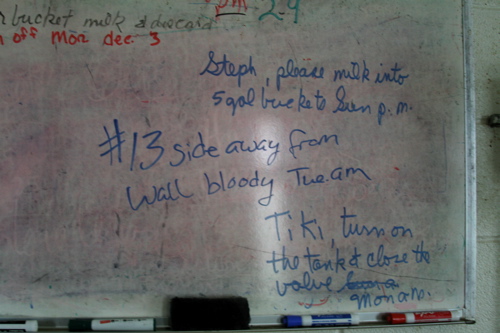 pm 29
bucket milk & discard
off Mon dec. 3
Steph, please milk into
5 gal buckets Sun p.m.
#13 side away from
Wall bloody Tue am
Tiki, turn on
the tank & close the
valve
Mon am.